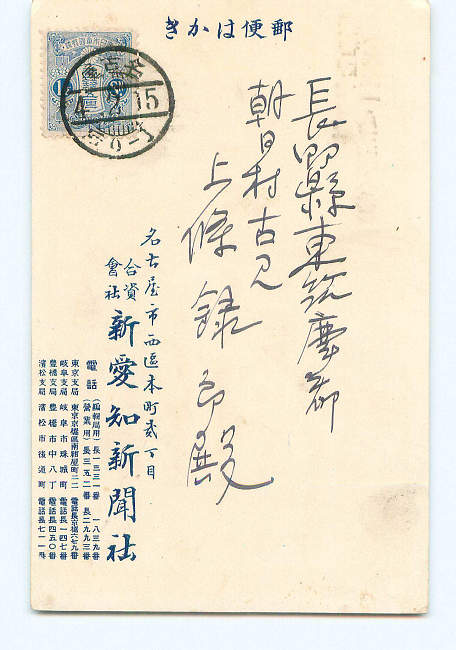 郵便はかき
長野縣東筑摩郡
朝日村古見
上條録郎殿
名古屋市西區本町貳丁目
合資會社 新愛知新聞社
電話
(編輯局用) 長一三一番 一八三九番
(營業用) 長三五二番 長二九九三番
東京支局 東京京橋區南紺屋町一二 電話長京橋六七九番
岐阜支局 岐阜市珠城町 電話長一四七番
豊橋支局 豊橋市中八丁 電話長四五〇番
濱松支局 濱松市後道町 電話長七一一番